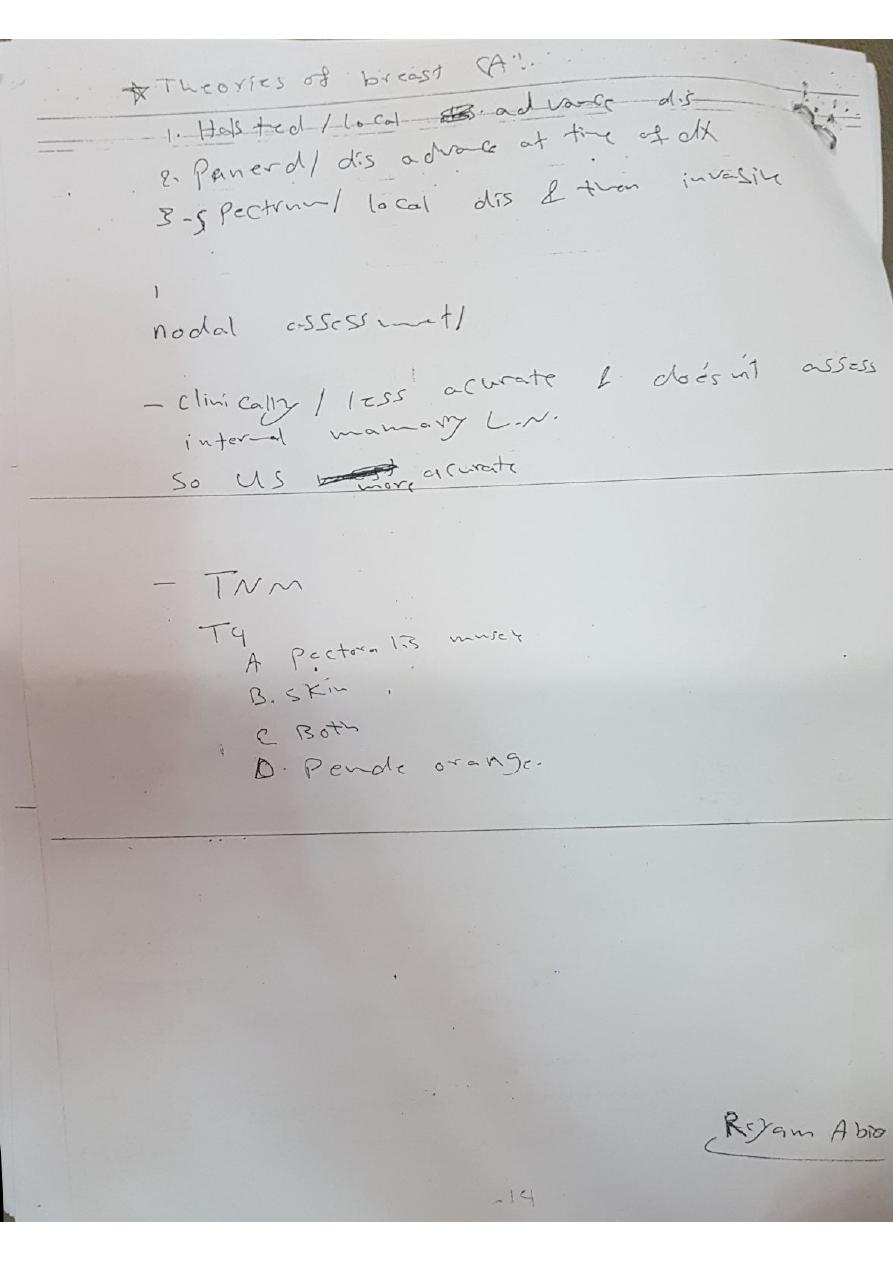 ☆ Theories of breast CA:.
1. Halsted / local advance dis
2. Panerd / dis advance at time of dx
3 - spectrum / local dis & then invasive
nodal assessmet /
- clinically / less acurate & does'nt assess
internal mamary L.N.
So US more acurate
- TNM
T4
A Pectoralis muscle
B. skin
C Both
D. Pende orange.
Reyam Abio
- 14